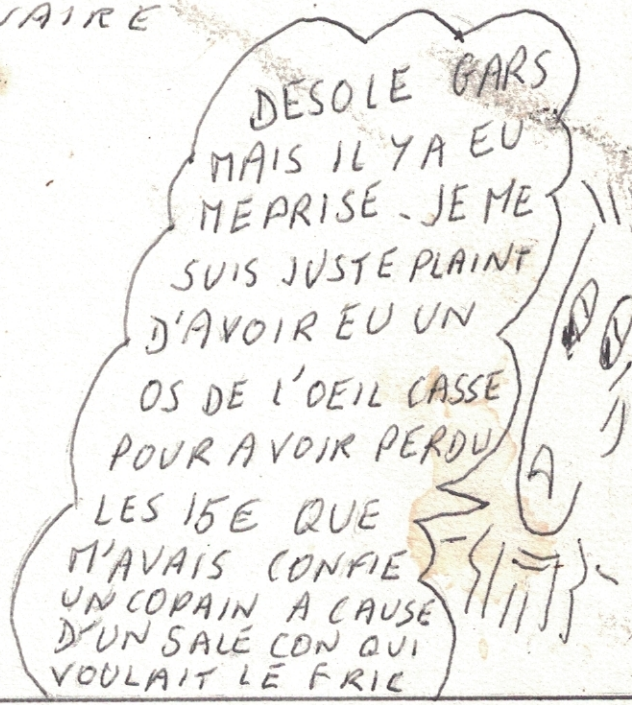 AIRE
DESOLE GARS
MAIS IL Y A EU
MEPRISE. JE ME
SUIS JUSTE PLAINT
D'AVOIR EU UN
OS DE L'OEIL CASSE
POUR AVOIR PERDU
LES 15E QUE
M'AVAIS CONFIE
UN COPAIN A CAUSE
D'UN SALE CON QUI
VOULAIT LE FRIC